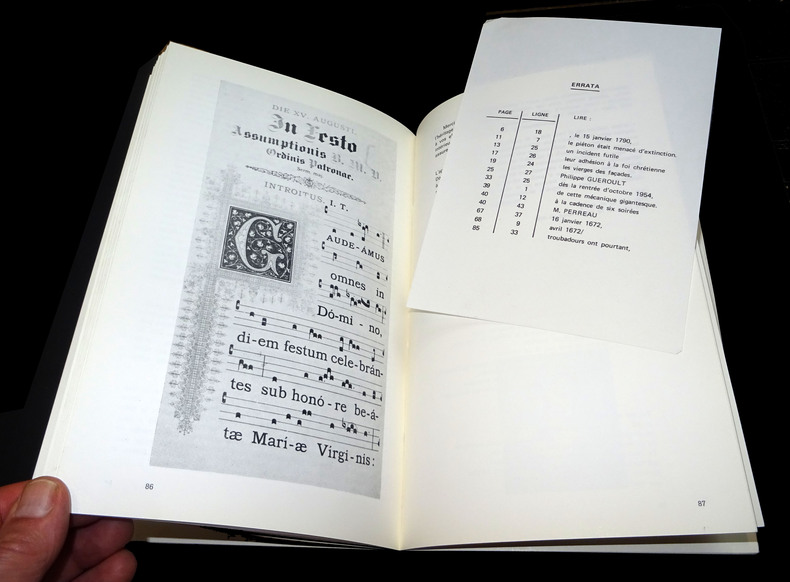 DIE XV. AUGUSTI.
In Festo
Assumptionis B. M. V.
Ordinis Patronae.
INTROITUS, I. T.
G
AUDE-ÁMUS
omnes in
Dó-mi - no,
di-em festum cele-brán-
tes sub honó - re be-á-
tæ Marí-æ Vírgi-nis:
86
ERRATA
PAGE LIGNE LIRE :
6 18 , le 15 janvier 1790,
11 7 le piéton était menacé d'extinction.
13 25 un incident futile
17 26 leur adhésion à la foi chrétienne
19 24 les vierges des façades.
25 27 Philippe GUEROULT
33 25 dès la rentrée d'octobre 1954,
39 1 de cette mécanique gigantesque.
40 12 à la cadence de six soirées
40 43 M. PERREAU
67 37 16 janvier 1672,
68 9 avril 1672/
85 33 troubadours ont pourtant,
87